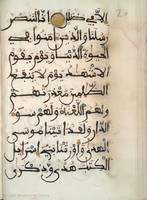 الا في ضلل انا لننصر
رسلنا والذين امنوا في
الحيوة الدنيا ويوم يقوم
الاشهد يوم لا تنفع
الظلمين معذرتهم
ولهم اللعنة ولهم سوء
الدار ولقد اتينا موسى
الهدى واورثنا بني اسرءيل
الكتب هدى وذكرى